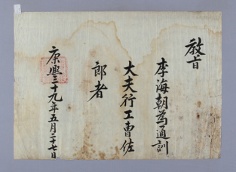 教旨
李海朝爲通訓
大夫行工曹佐
郎者
康熙三十九年五月二十七日